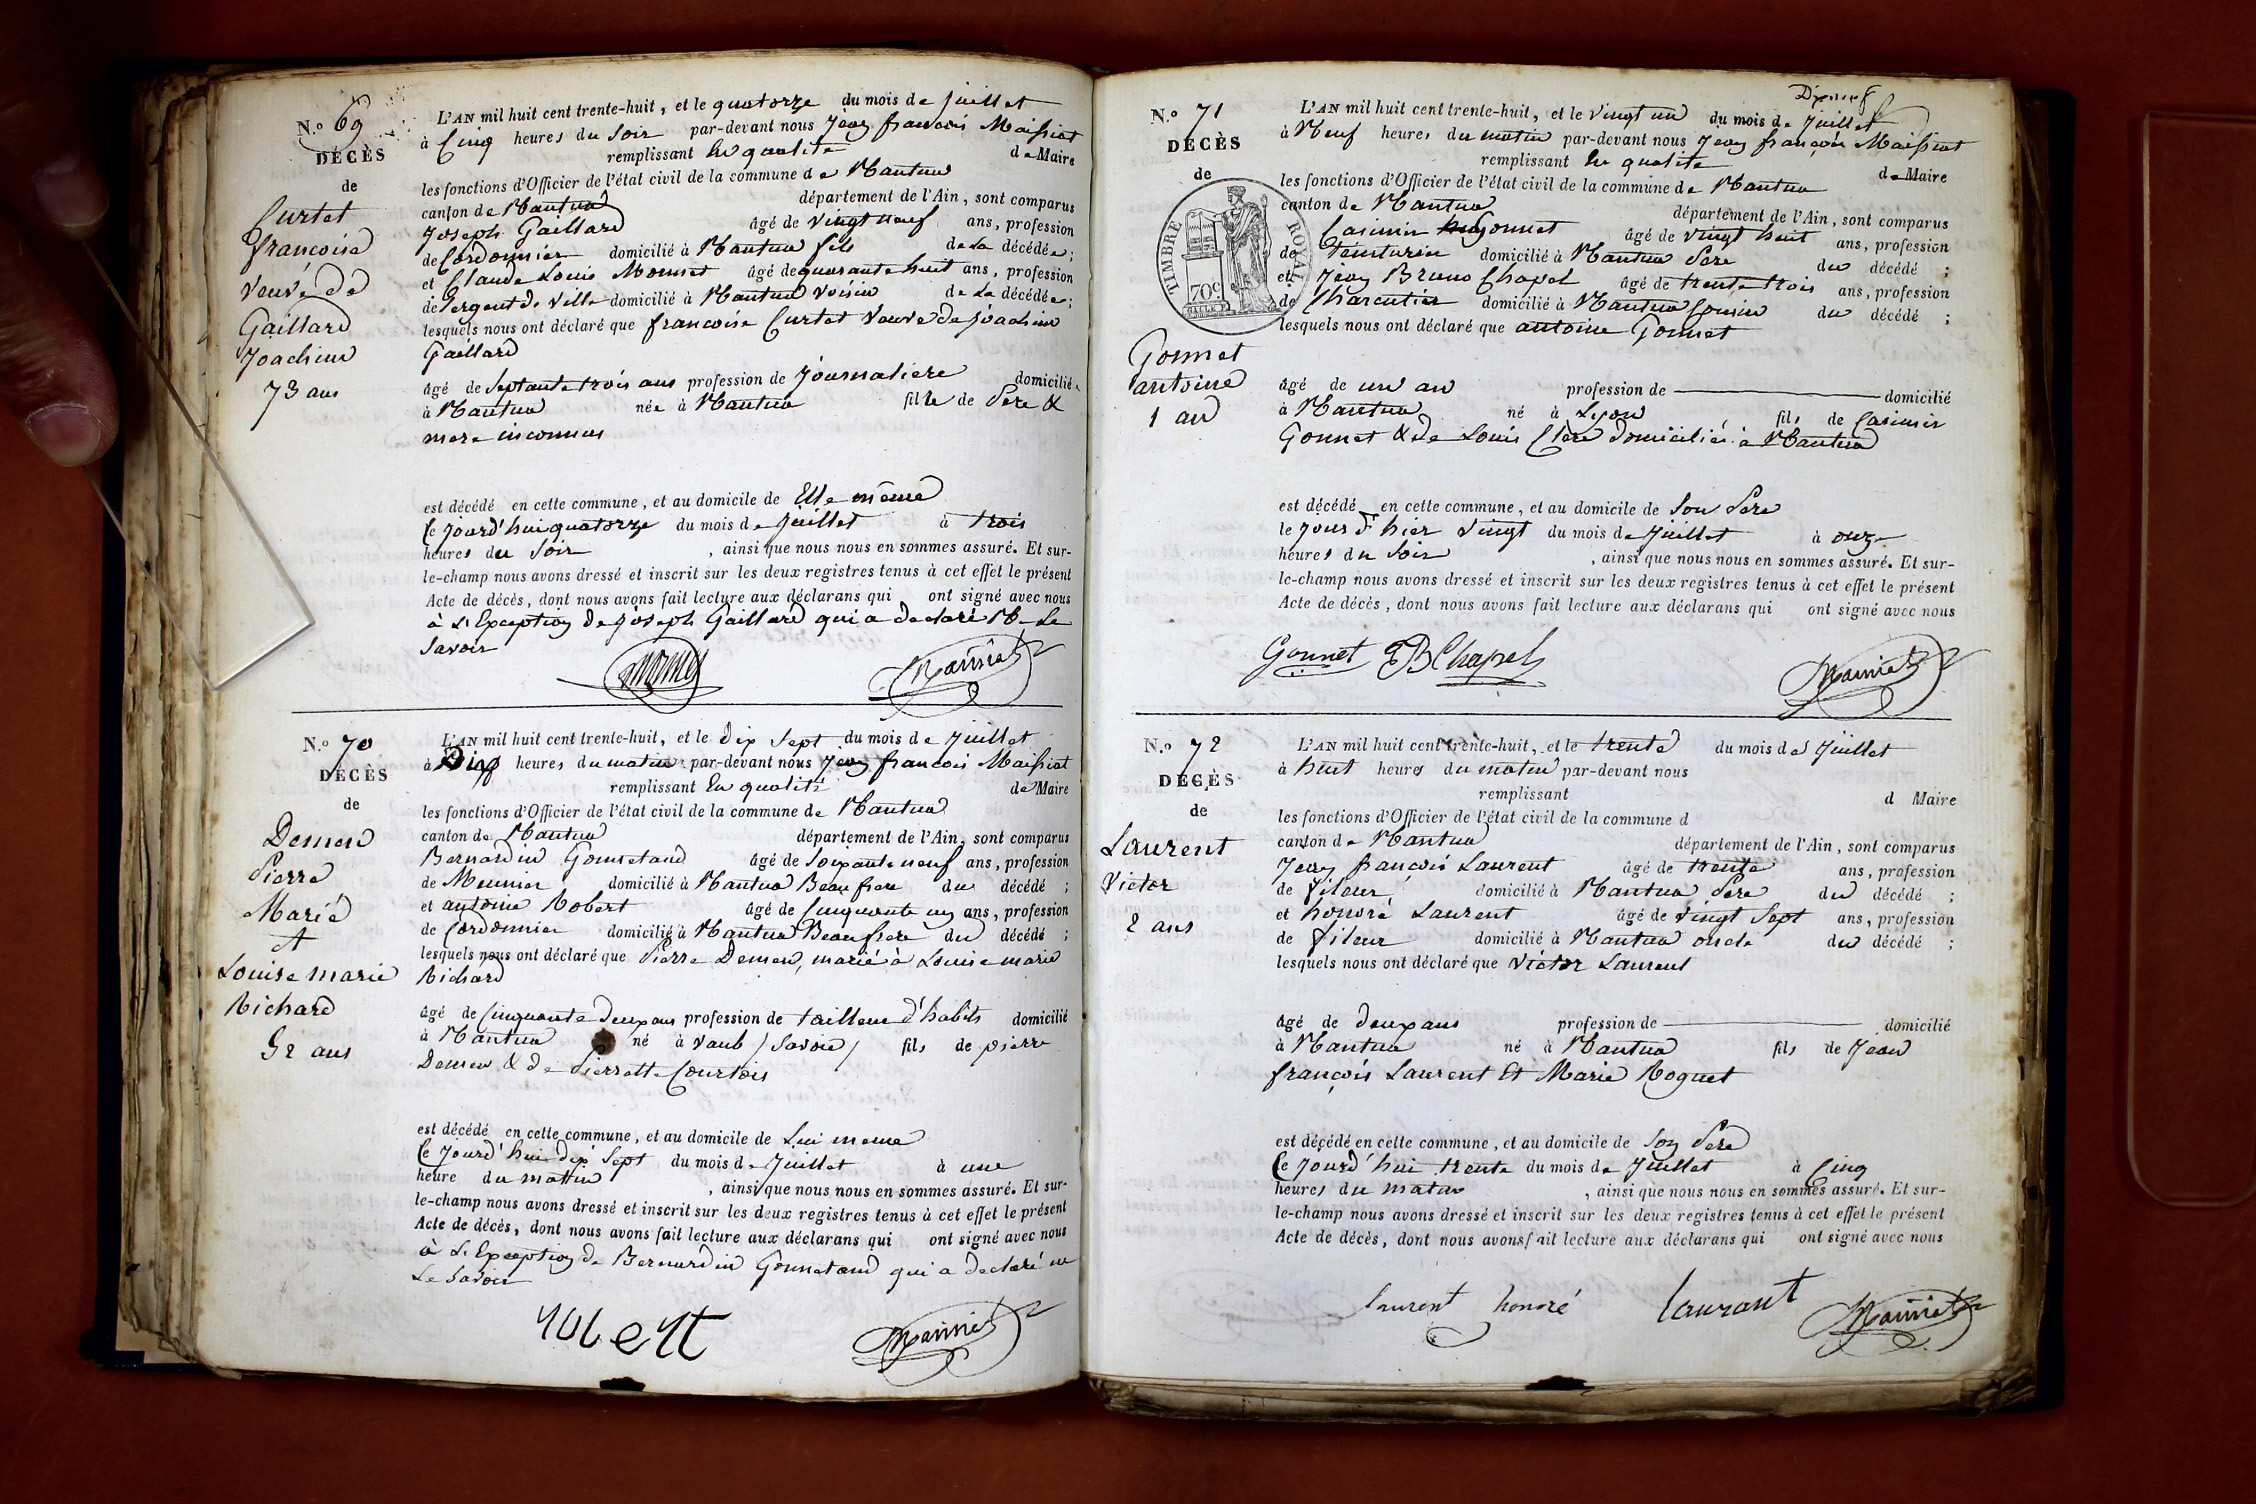 N.º 69
DÉCÈS
de
Curtet
francoise
veuve de
Gaillard
Joachim
73 ans
L'AN mil huit cent trente-huit, et le quatorze du mois de juillet
à Cinq heures du Soir par-devant nous Jean francois Maissiat
remplissant En qualité de Maire
les fonctions d'Officier de l'état civil de la commune de Nantua
canton de Nantua département de l'Ain, sont comparus
Joseph Gaillard âgé de vingt neuf ans, profession
de Cordonnier domicilié à Nantua fils de la décédée;
et Claude Louis Monnet âgé de quarante huit ans, profession
de Sergent de ville domicilié à Nantua voisin de la décédée;
lesquels nous ont déclaré que francoise Curtet veuve de Joachim
Gaillard
âgé de septante trois ans profession de Journaliere domicilié
à Nantua née à Nantua fille de Pere &
mere inconnus
est décédé en cette commune, et au domicile de Elle même
Ce jourd'hui quatorze du mois de juillet à trois
heures du Soir, ainsi que nous nous en sommes assuré. Et sur-
le-champ nous avons dressé et inscrit sur les deux registres tenus à cet effet le présent
Acte de décès, dont nous avons fait lecture aux déclarans qui ont signé avec nous
à L'Exception de Joseph Gaillard qui a declaré Ne Le
Savoir
N.º 70
DÉCÈS
de
Demen
Pierre
Marié
A
Louise marie
Richard
52 ans
L'AN mil huit cent trente-huit, et le Dix Sept du mois de Juillet
à heures du matin par-devant nous Jean francois Maissiat
remplissant En qualité de Maire
les fonctions d'Officier de l'état civil de la commune de Nantua
canton de Nantua département de l'Ain, sont comparus
Bernardin Gonnetand âgé de Soixante neuf ans, profession
de Meunier domicilié à Nantua Beau frere du décédé;
et antoine Robert âgé de Cinquante un ans, profession
de Cordonnier domicilié à Nantua Beau frere du décédé;
lesquels nous ont déclaré que Pierre Demen, marié à Louise marie
Richard
âgé de Cinquante deux ans profession de tailleur d'habits domicilié
à Nantua né à vaub / Savoie / fils de pierre
Demen & de Pierrette Courtois
est décédé en cette commune, et au domicile de Lui meme
Ce Jourd'hui Dix Sept du mois de Juillet à une
heure du matin, ainsi que nous nous en sommes assuré. Et sur-
le-champ nous avons dressé et inscrit sur les deux registres tenus à cet effet le présent
Acte de décès, dont nous avons fait lecture aux déclarans qui ont signé avec nous
à L'Exception de Bernardin Gonnetand qui a declaré ne
Le Savoir
robert
N.º 71
DÉCÈS
de
TIMBRE ROYAL
70c
Gonnet
antoine
1 an
L'AN mil huit cent trente-huit, et le vingt un du mois de Juillet
à Neuf heures du matin par-devant nous Jean françois Maissiat
remplissant En qualité de Maire
les fonctions d'Officier de l'état civil de la commune de Nantua
canton de Nantua département de l'Ain, sont comparus
Casimir Gonnet âgé de vingt huit ans, profession
de teinturier domicilié à Nantua Pere du décédé;
et Jean Bruno Chapel âgé de trente trois ans, profession
de Charcutier domicilié à Nantua Cousin du décédé;
lesquels nous ont déclaré que antoine Gonnet
âgé de un an profession de domicilié
à Nantua né à Lyon fils de Casimir
Gonnet & de Louis Clere domiciliés à Nantua
est décédé en cette commune, et au domicile de Son Pere
le jour d'hier vingt du mois de Juillet à onze
heures du Soir, ainsi que nous nous en sommes assuré. Et sur-
le-champ nous avons dressé et inscrit sur les deux registres tenus à cet effet le présent
Acte de décès, dont nous avons fait lecture aux déclarans qui ont signé avec nous
Gonnet JB Chapel
N.º 72
DÉCÈS
de
Laurent
Victor
2 ans
L'AN mil huit cent trente-huit, et le trente du mois de Juillet
à huit heures du matin par-devant nous
remplissant d Maire
les fonctions d'Officier de l'état civil de la commune d
canton de Nantua département de l'Ain, sont comparus
Jean françois Laurent âgé de trente ans, profession
de fileur domicilié à Nantua Pere du décédé;
et honoré Laurent âgé de vingt Sept ans, profession
de fileur domicilié à Nantua oncle du décédé;
lesquels nous ont déclaré que victor Laurent
âgé de deux ans profession de domicilié
à Nantua né à Nantua fils de Jean
françois Laurent Et Marie Roguet
est décédé en cette commune, et au domicile de Son Pere
Ce Jourd'hui trente du mois de Juillet à Cinq
heures du matin, ainsi que nous nous en sommes assuré. Et sur-
le-champ nous avons dressé et inscrit sur les deux registres tenus à cet effet le présent
Acte de décès, dont nous avons fait lecture aux déclarans qui ont signé avec nous
laurent honoré laurant